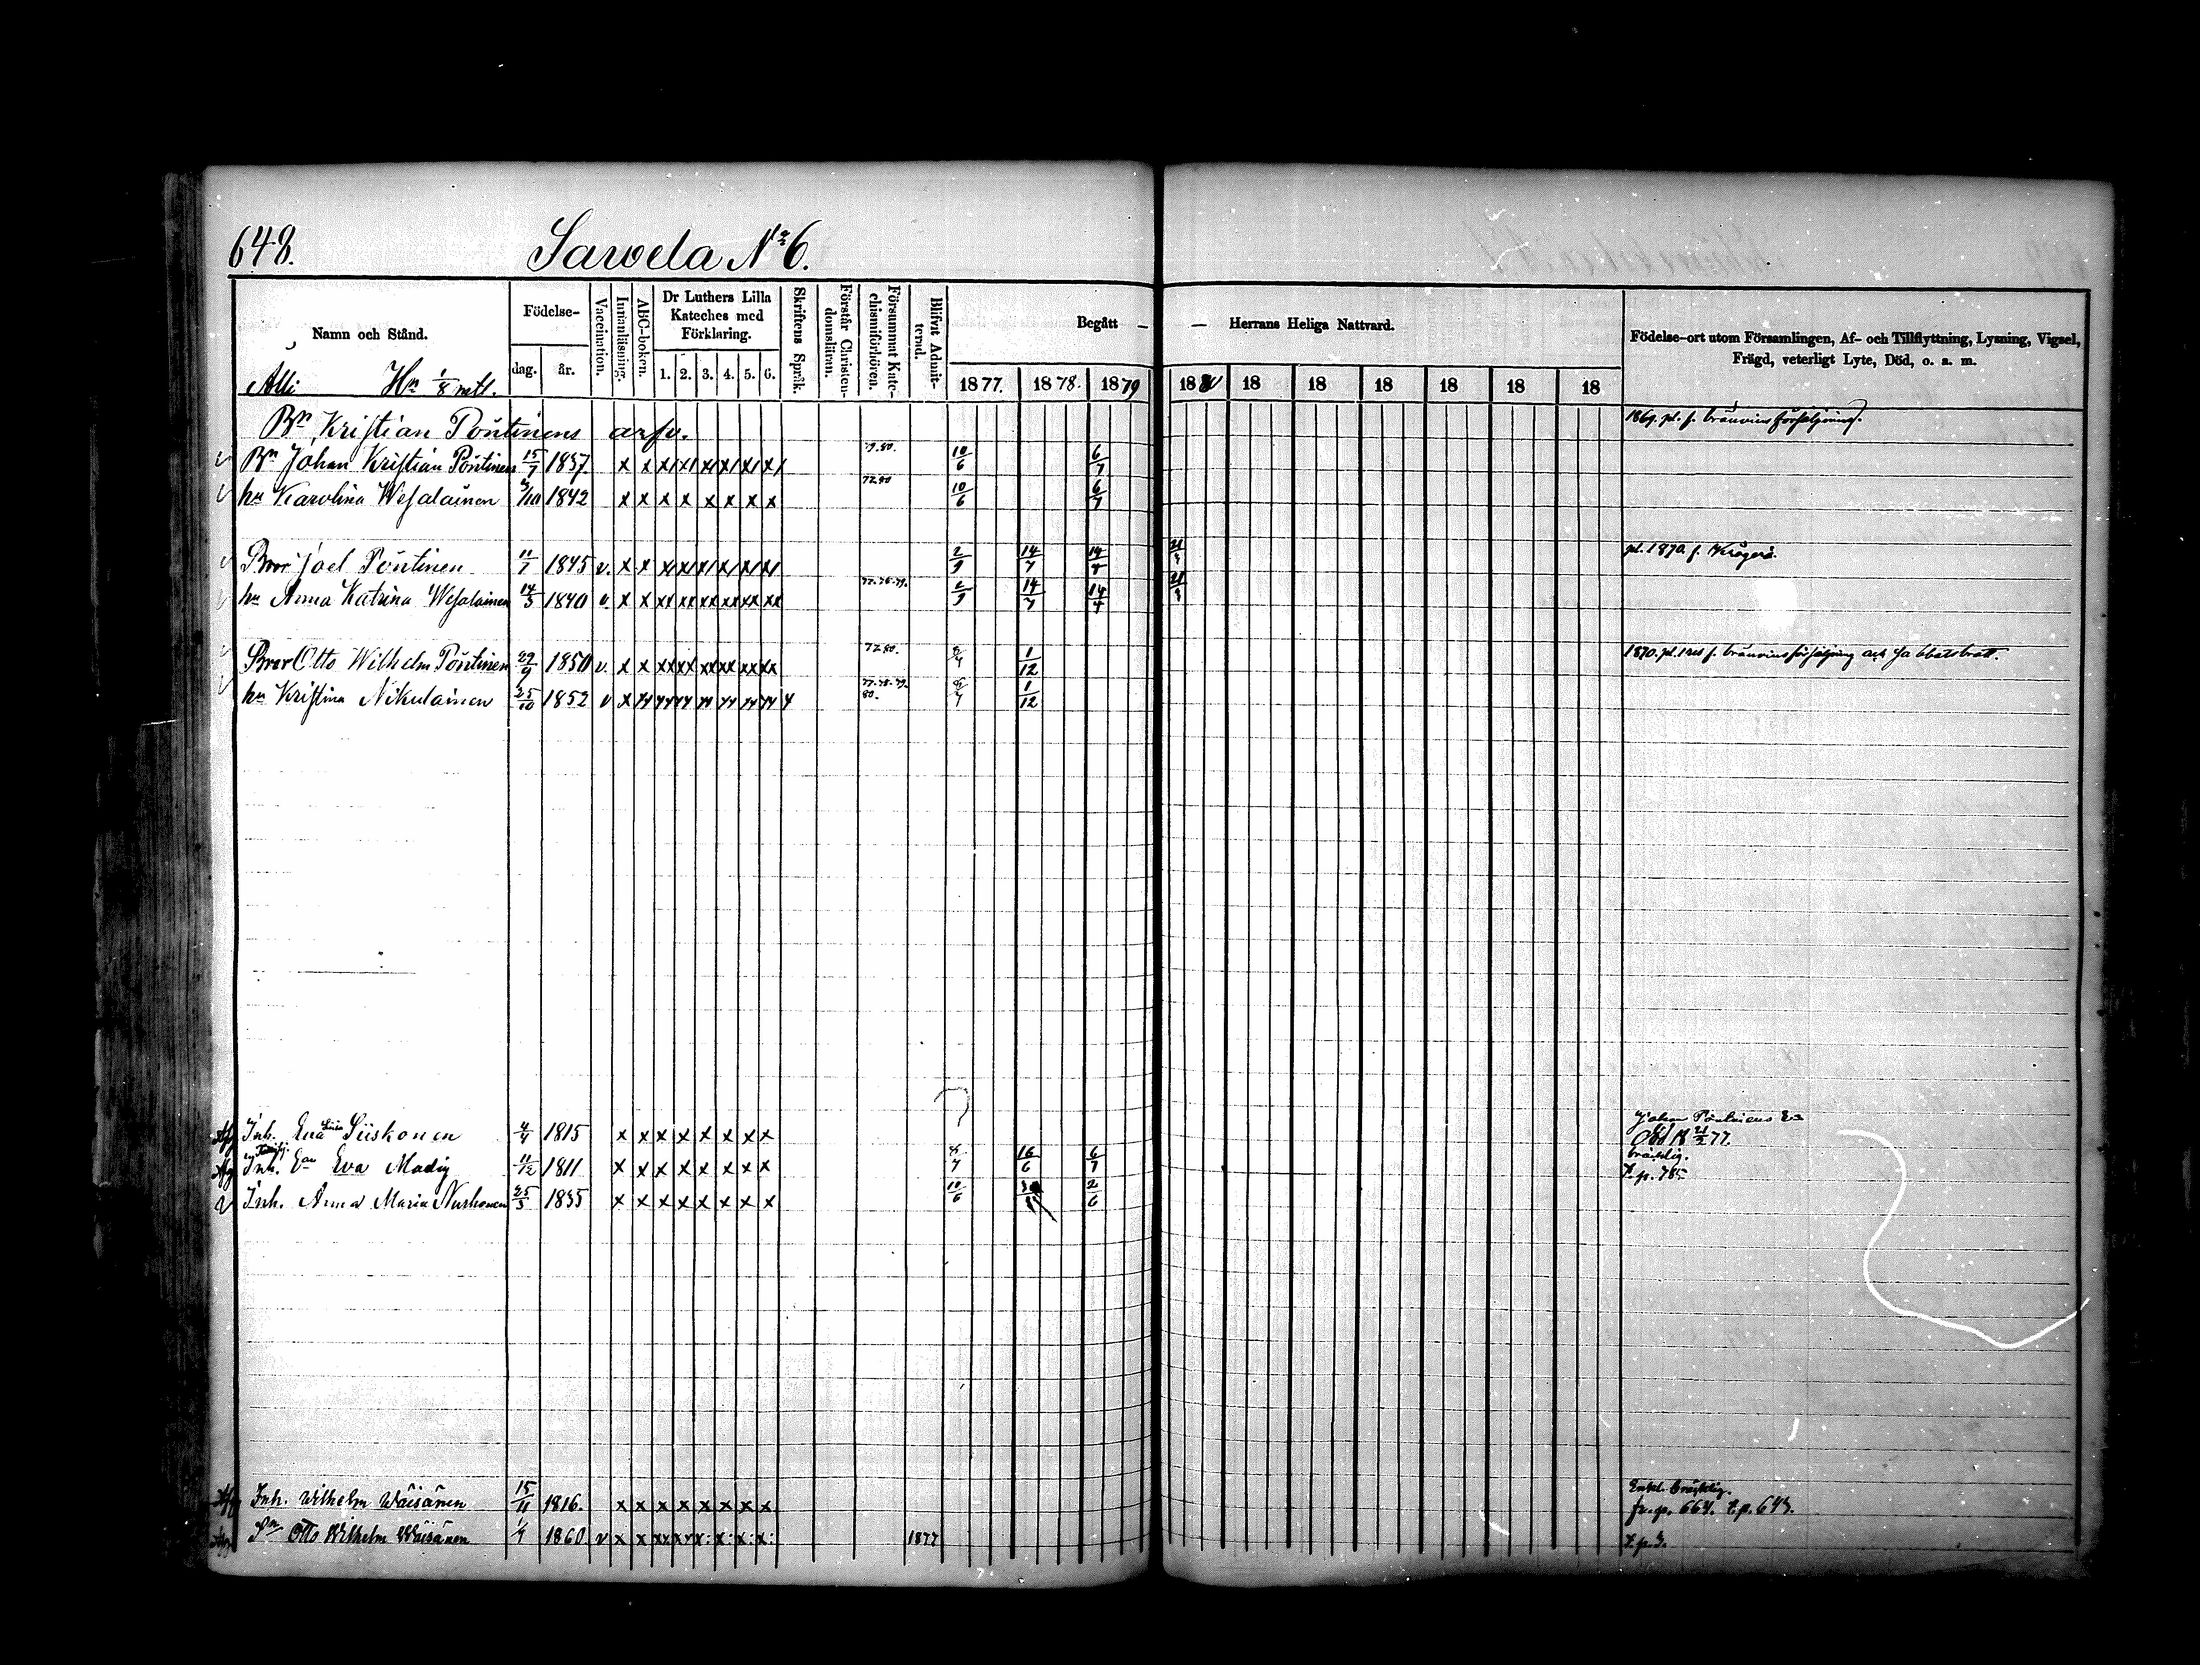 648.
Sawela No 6.
Namn och Stånd.
Födelse-
dag.
år.
Vaccination.
Innanläsning.
ABC-boken.
Dr Luthers Lilla
Kateches med
Förklaring.
1. 2. 3. 4. 5. 6.
Skriftens Språk.
Förstår Christen-
domsläran.
Försummat Kate-
chismiförhören.
Blifvit Admit-
terad.
Begått — — Herrans Heliga Nattvard.
1877. 1878. 1879 18 18 18 18 18 18 18
Födelse-ort utom Församlingen, Af- och Tillflyttning, Lysning, Vigsel,
Frägd, veterligt Lyte, Död, o. a. m.
Alli Hn 1/8 mtl.
Bn Kristian Pöntinens arfv. 1869. pl. f. bränvins försäljning.
v Bn Johan Kristian Pöntinen 15/7 1837 x x x/ x/ x/ x/ x/ x/ 79.80. 10/6 6/7
v hu Karolina Wesalainen 3/10 1842 x x x x x x x x 10/6 6/7
v Bror Joel Pöntinen 11/7 1845 v. x x x/ x/ x/ x/ x/ x/ 2/9 14/7 14/4 pl. 1870 f.
v hu Anna Katrina Wesalainen 14/3 1840 v. x x xx xx xx xx xx xx 77.78.79. 2/9 14/7 14/4
Bror Otto Wilhelm Pöntinen 29/9 1850 v. x x xx xx xx xx xx xx 1/12 1870. pl. f. bränvinsförsäljning och sabbatsbrott.
v hu Kristina Nikulainen 25/10 1852 v x 77.78.79. 80. 1/12
Afg Inh. Eva Lisa Siiskonen 4/4 1815 x x x x x x x x Johan Pöntinens En
Död 18 21/2 77.
Afg Inh. En Eva Madig 11/12 1811 x x x x x x x x 16/6 6/7 bräcklig.
T. p. 785
v Inh. Anna Maria 25/3 1835 x x x x x x x x 10/6 2/6
Afg Inh. Wilhelm Wäisänen 15/11 1816. x x x x x x x x Enkl. bräcklig.
fr. p. 664. t. p. 643.
Afg Sn Otto Wilhelm Wäisänen 1/4 1860 v x x xx xx x: x: x: x: 1877 t. p. 3.